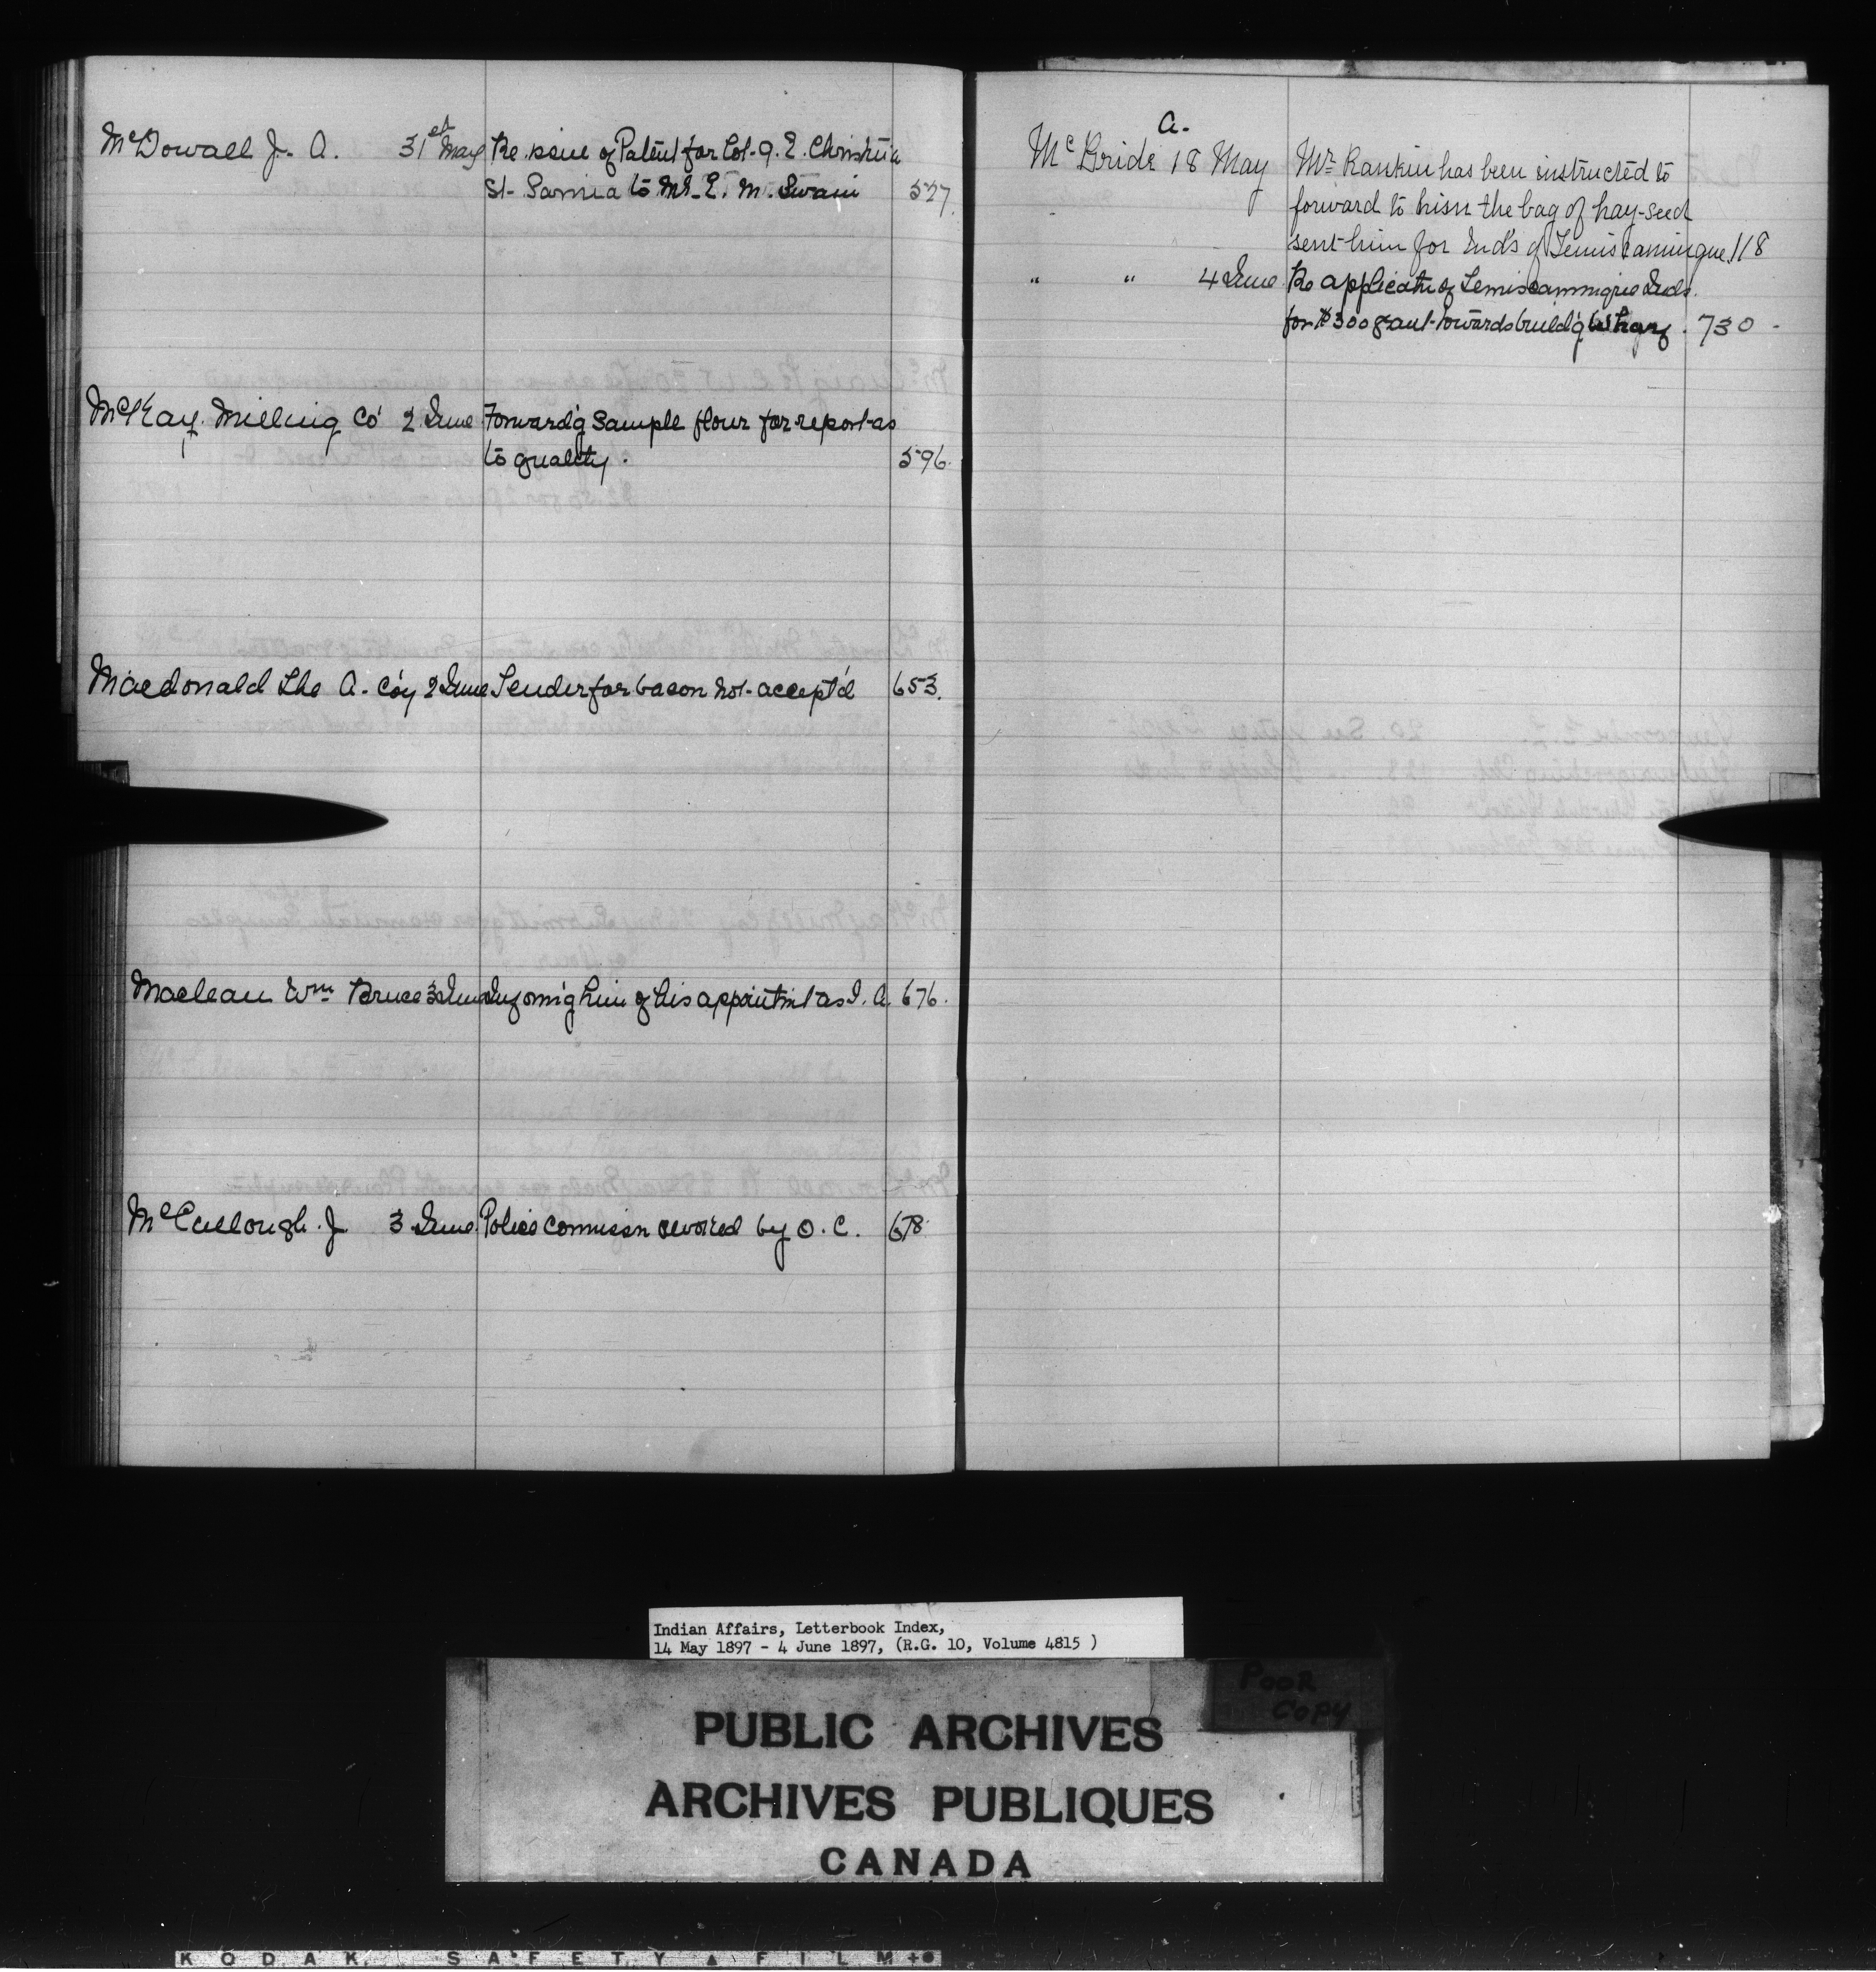 McDowall J. A. 31st May Re. issue of Patent for Lot. 9. E. Christina
St. Sarnia to Mr. E. M. Swain 527.
McKay Milling Co 2 June Forward'g Sample flour for report as
to quality. 596.
Macdonald The A. Co'y 2 June Tender for bacon not accept'd 653.
Maclean Wm Bruce 3 June Informi'g him of his appointm't as I. A. 676.
McCullough. J 3 June Police Commissn revoked by O. C. 678.
A.
McBride 18 May Mr Rankin has been instructed to
forward to him the bag of hay-seed
sent him for Ind's of Temiscamingue 118
" " 4 June Re applicatn of Temiscammigue Inds.
for $300 gant towards build'g Wharf. 730 -
Indian Affairs, Letterbook Index,
14 May 1897 - 4 June 1897, (R.G. 10, Volume 4815 )
POOR
COPY
PUBLIC ARCHIVES
ARCHIVES PUBLIQUES
CANADA
KODAK SAFETY ▲ FILM